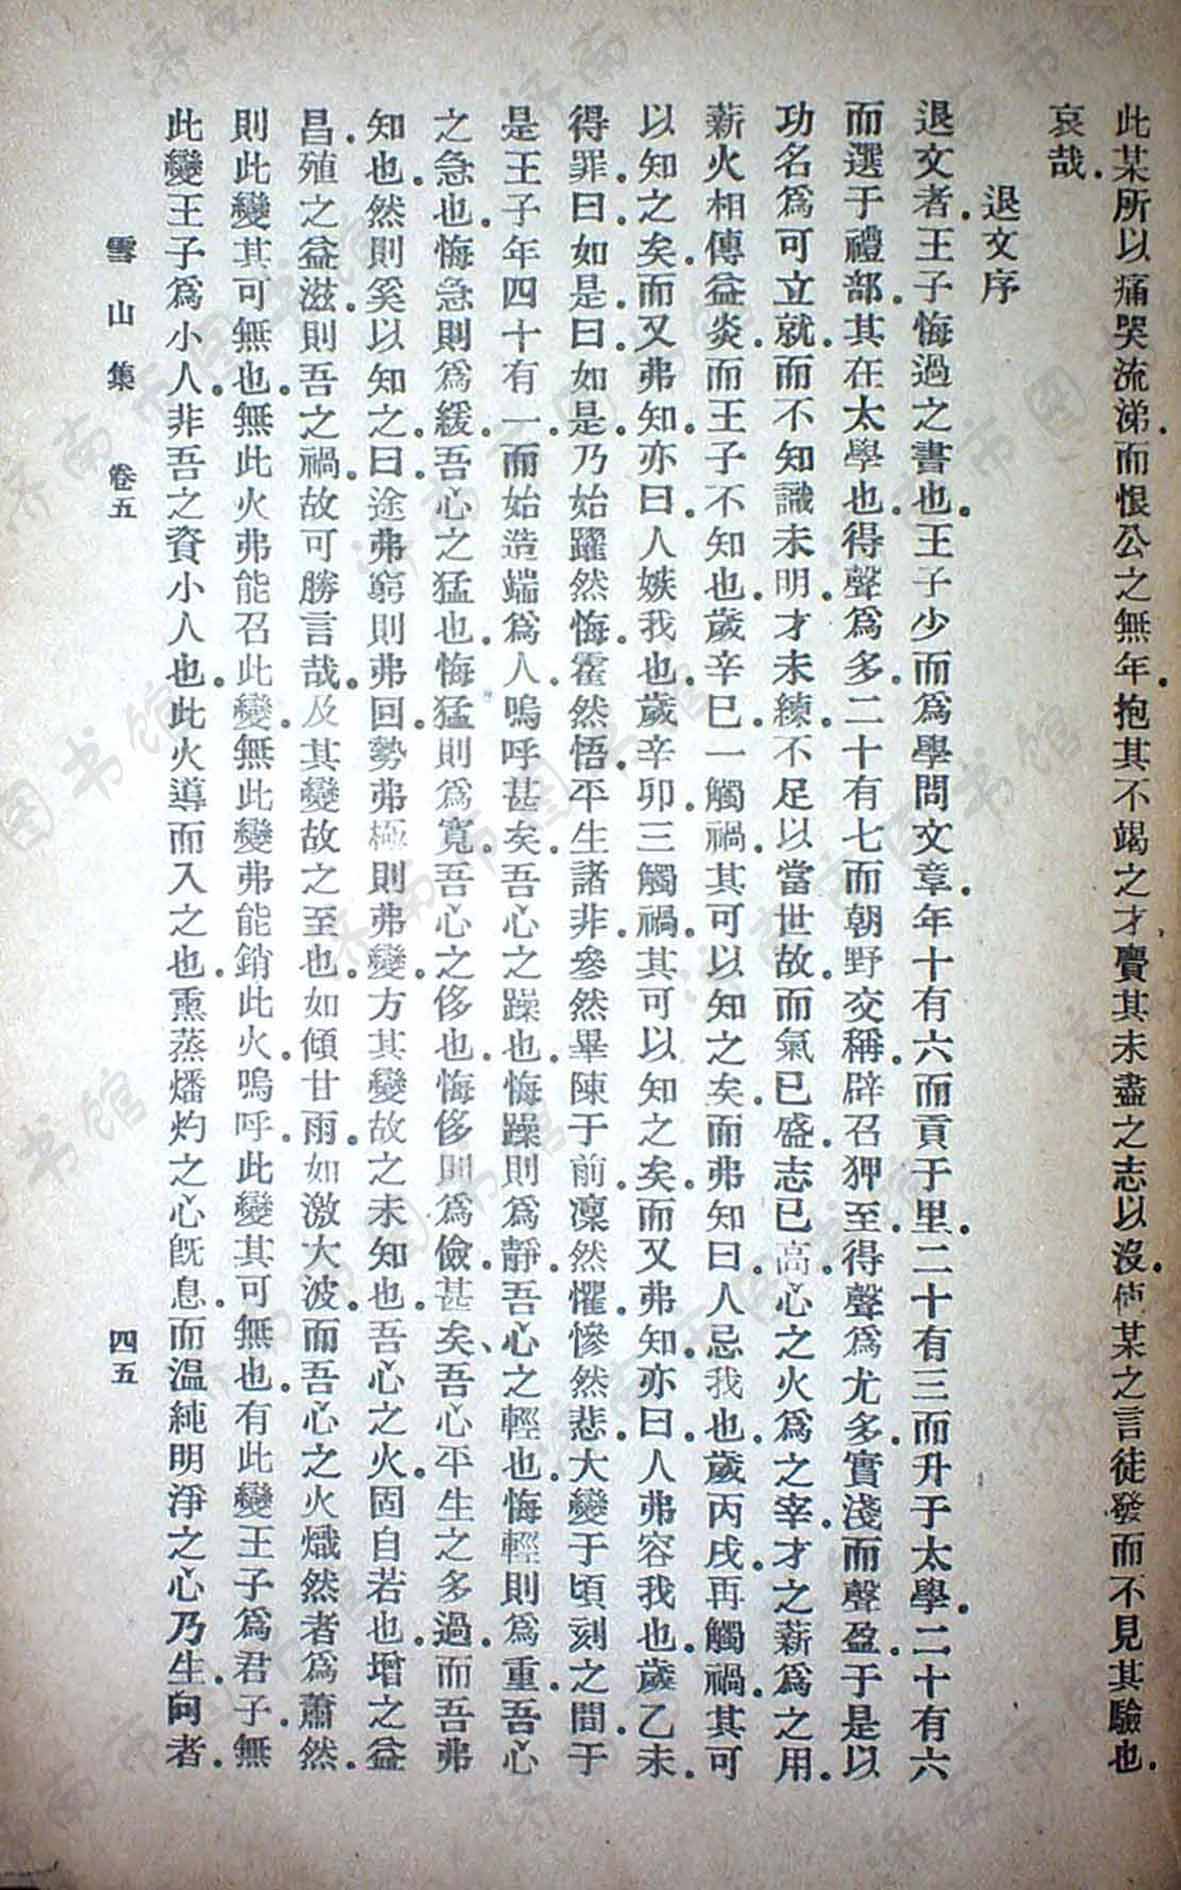 此某所以痛哭流涕。而恨公之無年。抱其不竭之才。賷其未盡之志以沒。使某之言徒發而不見其驗也。
哀哉。
退文序
退文者。王子悔過之書也。王子少而爲學問文章。年十有六而貢于里。二十有三而升于太學。二十有六
而選于禮部。其在太學也。得聲爲多。二十有七而朝野交稱。辟召狎至。得聲爲尤多。實淺而聲盈。于是以
功名爲可立就。而不知識未明。才未練。不足以當世故。而氣已盛。志已高。心之火爲之宰。才之薪爲之用。
薪火相傳益炎。而王子不知也。歲辛巳。一觸禍。其可以知之矣。而弗知。曰。人忌我也。歲丙戌。再觸禍。其可
以知之矣。而又弗知。亦曰。人嫉我也。歲辛卯。三觸禍。其可以知之矣。而又弗知。亦曰。人弗容我也。歲乙未。
得罪。曰。如是。曰。如是。乃始躍然悔。霍然悟。平生諸非。參然畢陳于前。凜然懼。慘然悲。大變于頃刻之間。于
是王子年四十有一。而始造端爲人。嗚呼甚矣。吾心之躁也。悔躁則爲靜。吾心之輕也。悔輕則爲重。吾心
之急也。悔急則爲緩。吾心之猛也。悔猛則爲寬。吾心之侈也。悔侈則爲儉。甚矣、吾心平生之多過。而吾弗
知也。然則奚以知之。曰。途弗窮則弗回。勢弗極則弗變。方其變故之未知也。吾心之火。固自若也。增之益
昌。殖之益滋。則吾之禍。故可勝言哉。及其變故之至也。如傾甘雨。如激大波。而吾心之火熾然者爲蕭然。
則此變其可無也。無此火弗能召此變。無此變弗能銷此火。嗚呼。此變其可無也。有此變王子爲君子。無
此變王子爲小人。非吾之資小人也。此火導而入之也。熏蒸燔灼之心旣息。而温純明淨之心乃生。向者。
雪山集 卷五 四五